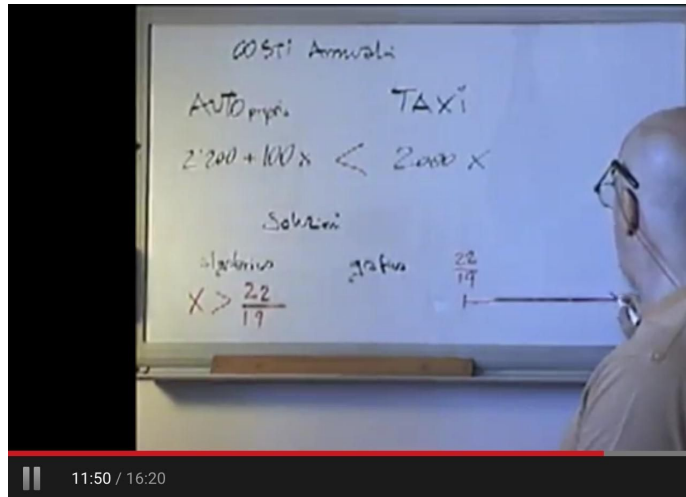 COSTI Annuali
AUTO propria TAXI
2'200 + 100 x < 2.000 x
Soluzioni
algebrica grafica 22
19
x > 22
19
11:50 / 16:20